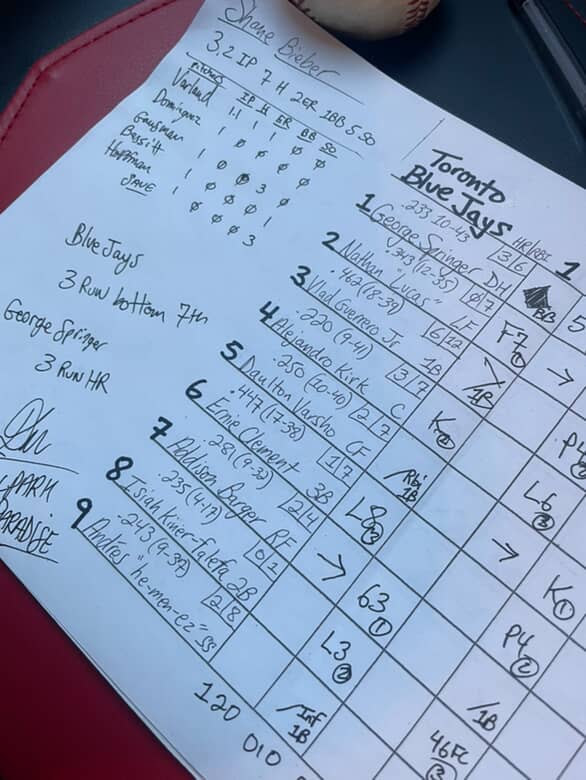 Shane Bieber
3.2 IP 7 H 2 ER 1BB 5 SO
PITCHERS IP H ER BB SO
Varland 1.1 1 1 ∅ ∅
Dominguez 1 ∅ ∅ ∅ ∅
Gausman 1 ∅ ∅ 3 ∅
Bassitt 1 ∅ ∅ ∅ 1
Hoffman 1 ∅ ∅ ∅ 3
SAVE
Blue Jays
3 Run bottom 7th
George Springer
3 RUN HR
PARK
PARADISE
Toronto
Blue Jays
HR/RBI 1
.233 10-43
1 George Springer DH 3/6 BB
.343 (12-35)
2 Nathan "Lucas" LF 0/7 F-7 ①
.462 (18-39)
3 Vlad Guerrero Jr 1B 6/12 1B
.220 (9-41)
4 Alejandro Kirk C 3/7 K ②
.250 (10-40)
5 Daulton Varsho CF 2/7 Rbi 1B
.447 (17-38)
6 Ernie Clement 3B 1/7 L8 ③
.281 (9-32)
7 Addison Barger RF 2/4
.235 (4-17)
8 Isiah Kiner-Falefa 2B 0/2 63 ①
.243 (9-37)
9 Andrés "he-men-ez" SS 2/8 L3 ②
Inf 1B
P4
L6 ③
K ①
P4 ②
1B
46FC ③
120
010